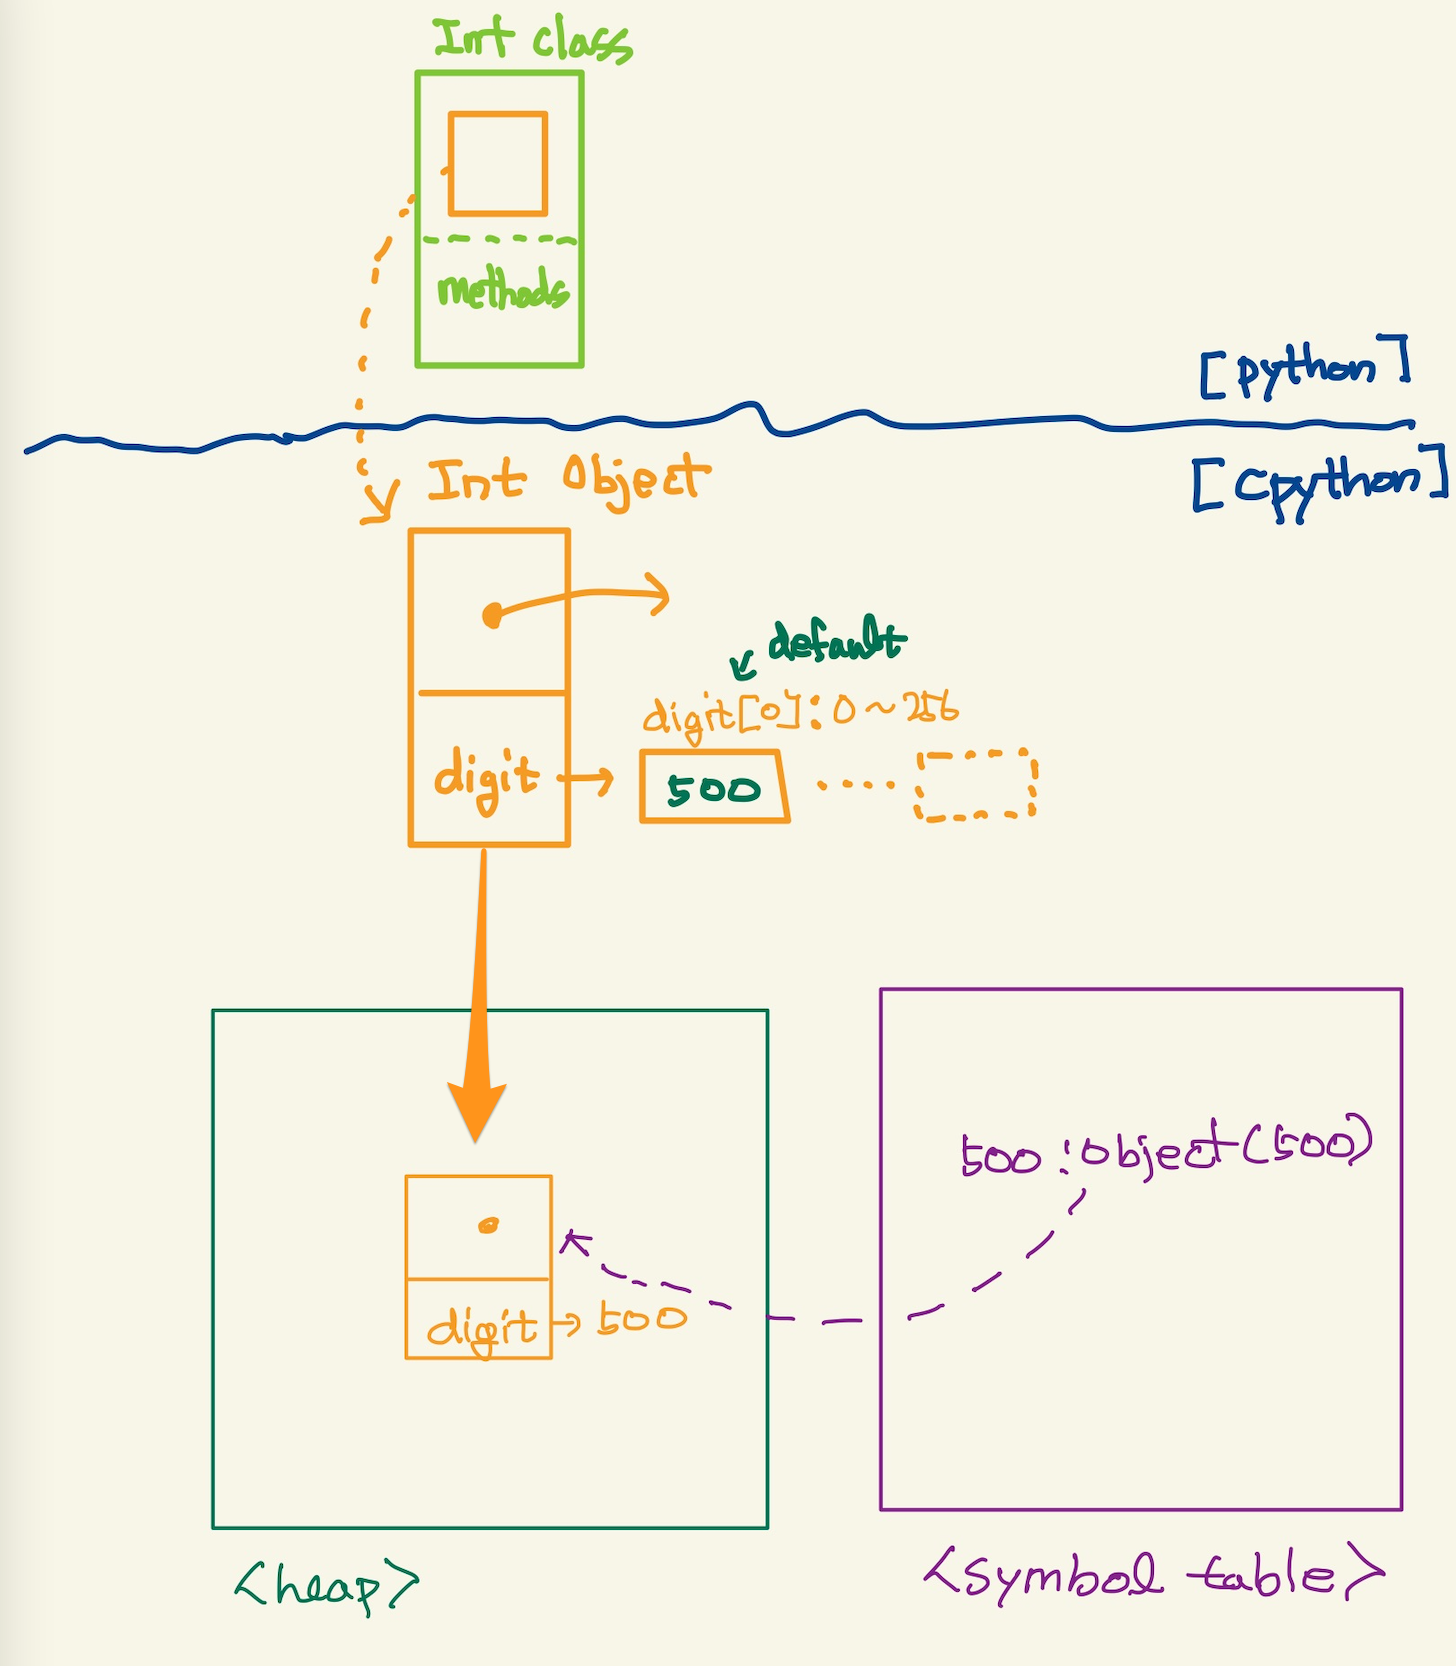 Int class
methods
[python]
[Cpython]
Int Object
default
digit[0]: 0 ~ 256
digit → 500
500 : object(500)
digit → 500
<heap>
<symbol table>